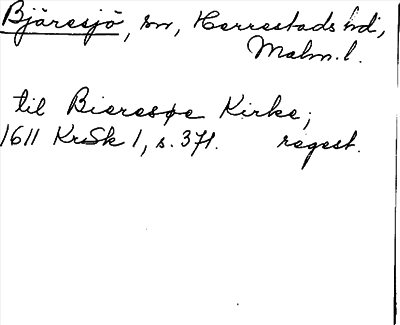 Bjäresjö, sn, Herrestads hd,
Malm. l.
til Bieresøe Kirke;
1611 KrSk 1, s. 371. regest.